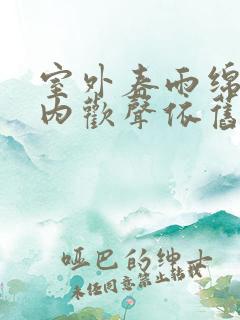 室外春雨绵
内歡聲依舊
哑巴的绅士
未经同意禁止转载